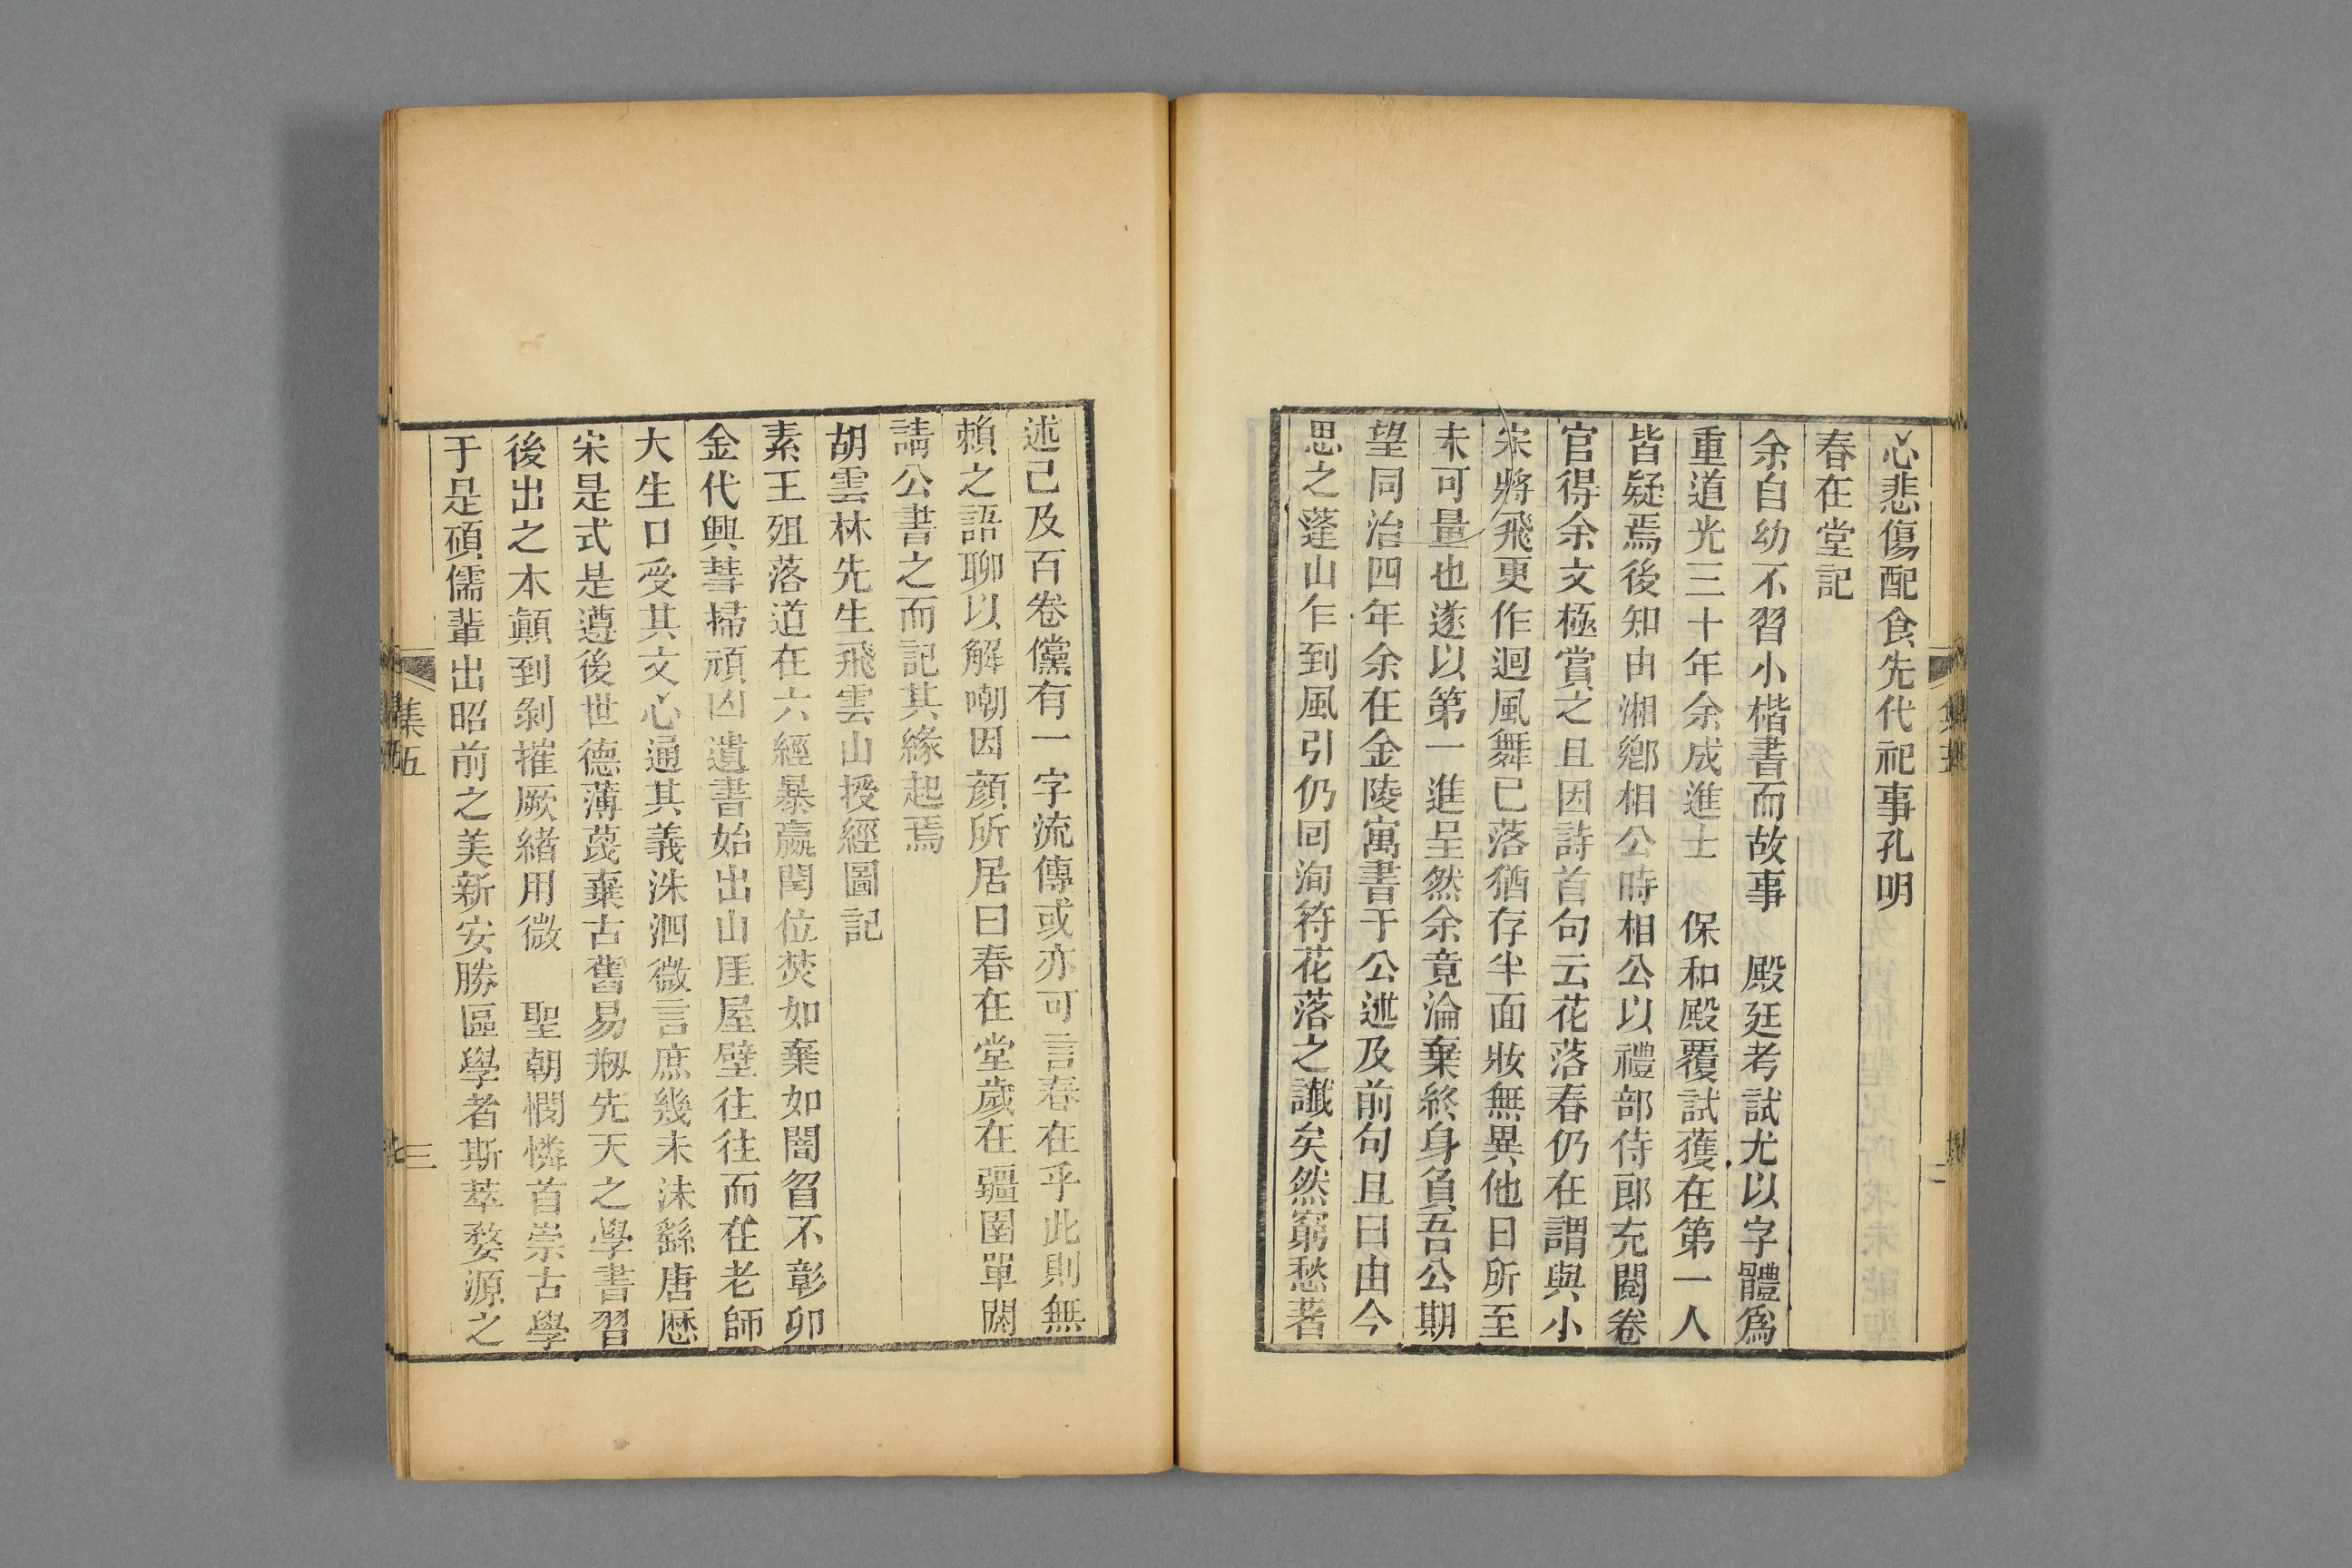 心悲傷配食先代祀事孔明
春在堂記
余自幼不習小楷書而故事　殿廷考試尤以字體爲
重道光三十年余成進士　保和殿覆試獲在第一人
皆疑焉後知由湘鄉相公時相公以禮部侍郎充閱卷
官得余文極賞之且因詩首句云花落春仍在謂與小
宋將飛更作迴風舞已落猶存半面妝無異他日所至
未可量也遂以第一進呈然余竟淪棄終身負吾公期
望同治四年余在金陵寓書于公述及前句且曰由今
思之蓬山乍到風引仍回洵符花落之讖矣然窮愁著
述己及百卷儻有一字流傳或亦可言春在乎此則無
賴之語聊以解嘲因顏所居曰春在堂歲在疆圉單閼
請公書之而記其緣起焉
胡雲林先生飛雲山授經圖記
素王殂落道在六經暴嬴閏位焚如棄如闇曶不彰卯
金代興彗掃頑凶遺書始出山厓屋壁往往而在老師
大生口受其文心通其義洙泗微言庶幾未沬繇唐歷
宋是式是遵後世德薄蔑棄古舊易剏先天之學書習
後出之本顛到剝摧厥緒用微　聖朝憫憐首崇古學
于是碩儒輩出昭前之美新安勝區學者斯萃婺源之
集五
三